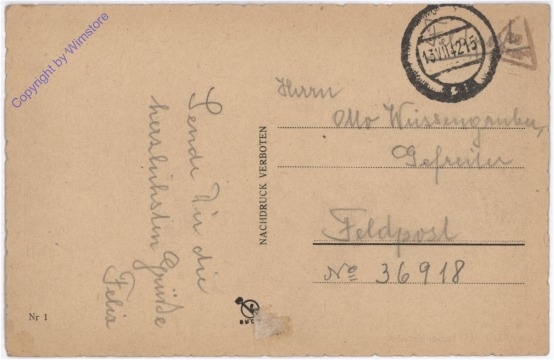 Copyright by Wimstore
Sende Dir die
herzlichsten Grüße
Felix
Nr 1
NACHDRUCK VERBOTEN
13.VII.42.15
Herrn
Otto Wiessengruber,
Gefreiter
Feldpost
No 36918